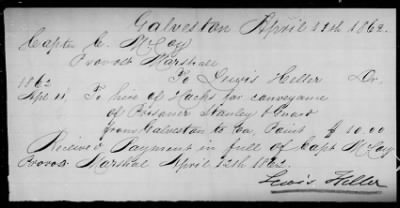 Galveston April 11th 1862.
Capt C. McCoy
Provost Marshall
To Lewis Heller Dr.
1862
Apl 11, To hire of Hacks for conveyance
of Prisoner Stanley & Guard
from Galveston to Point $ 10.00
Received Payment in full of Capt McCoy
Provost Marshal April 12th 1862.
Lewis Heller